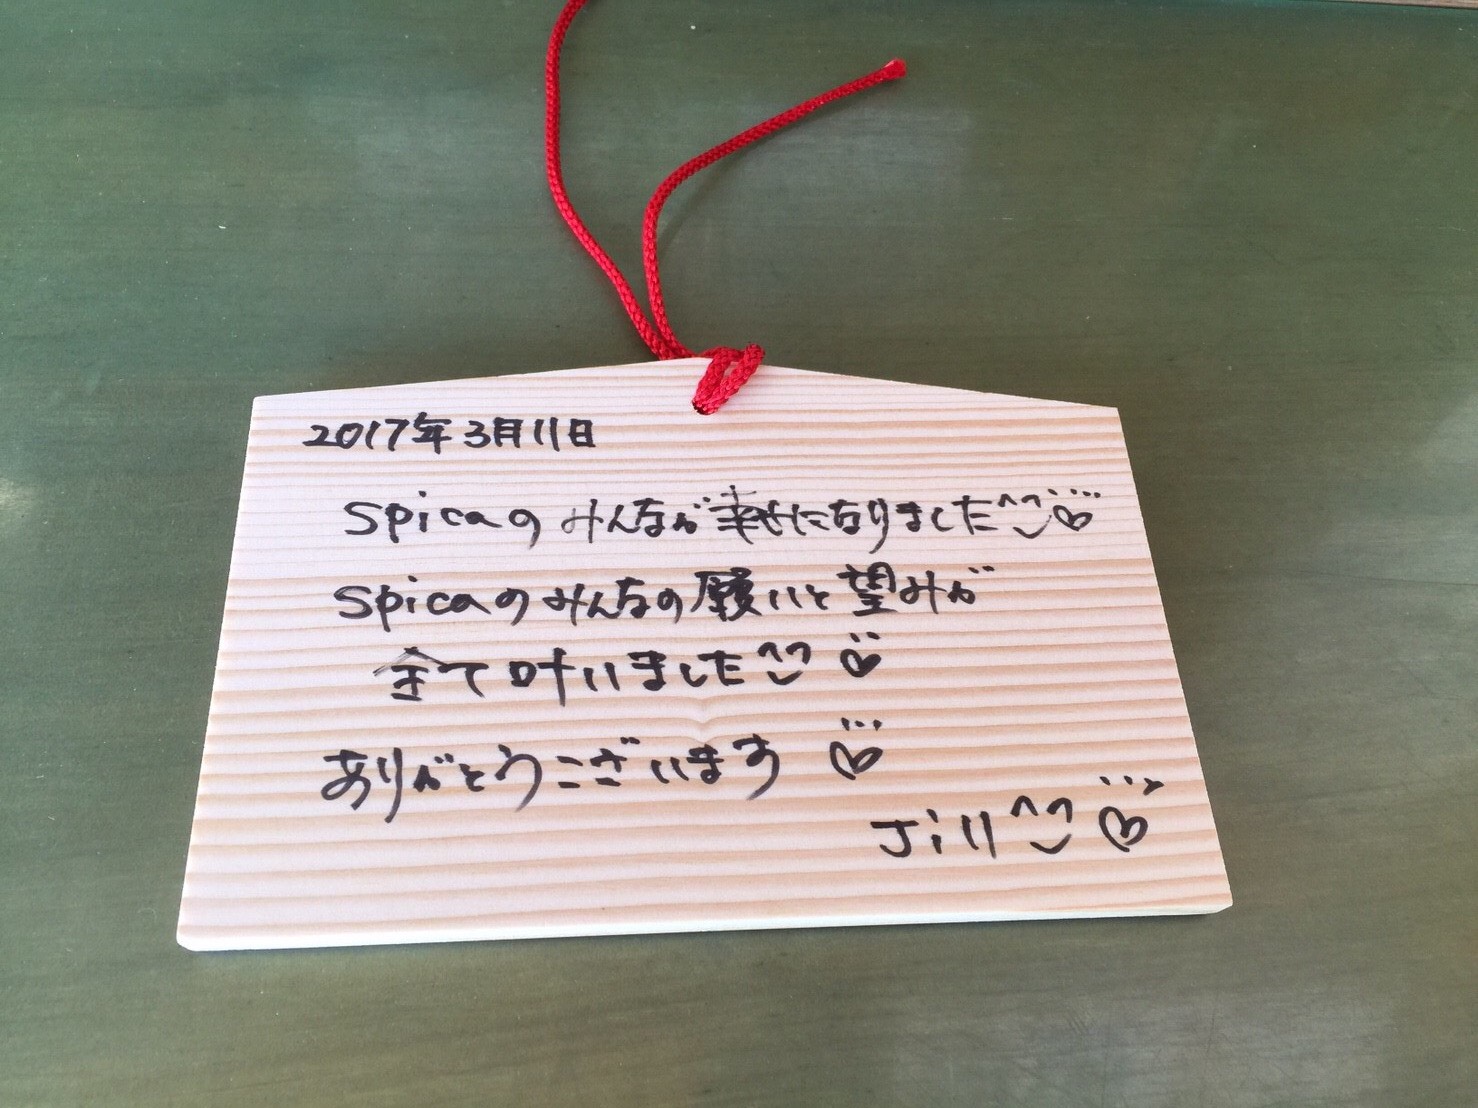 2017年3月11日
Spicaのみんなが幸せになりました^^♡
Spicaのみんなの願いと望みが
全て叶いました^^♡
ありがとうございます♡
Jill^^♡